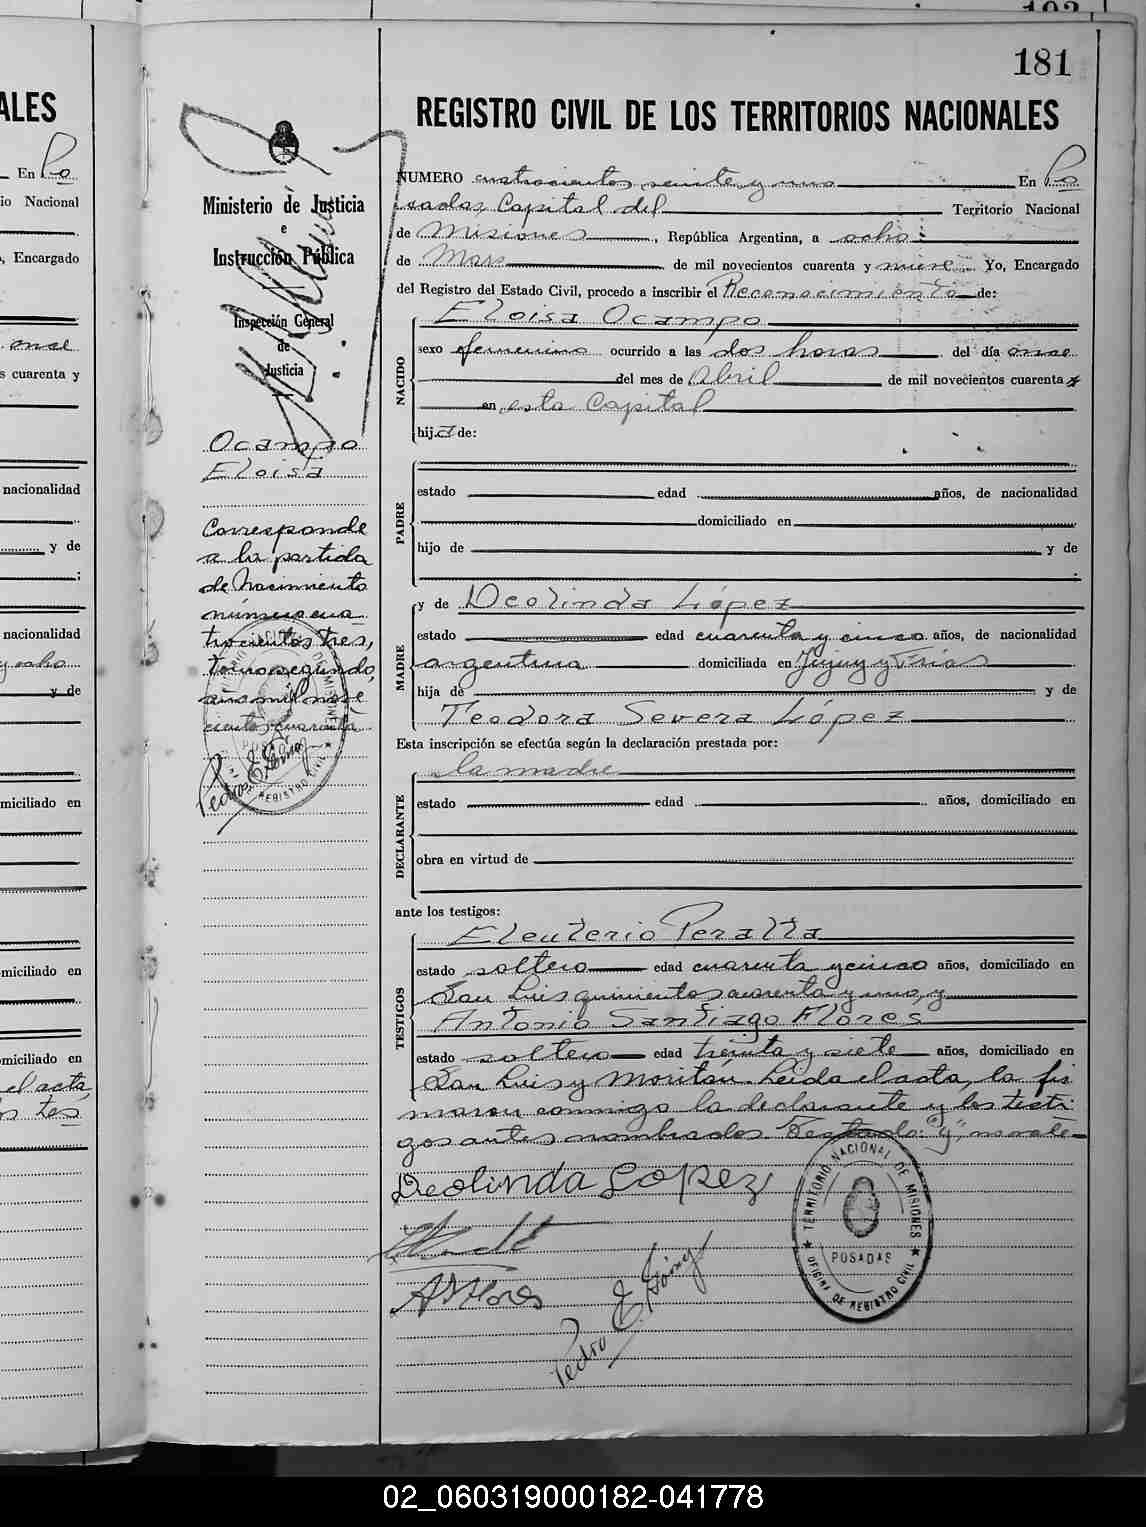 193
181
ALES
En Po
io Nacional
o, Encargado
once
s cuarenta y
nacionalidad
y de
nacionalidad
y ocho
y de
miciliado en
miciliado en
miciliado en
el acta,
REGISTRO CIVIL DE LOS TERRITORIOS NACIONALES
Ministerio de Justicia
e
Instrucción Pública
Inspección General
de
Justicia
Ocampo
Eloisa
Corresponde
a la partida
de Nacimiento
número cua
trocientos tres,
tomo segundo,
año mil nove
cientos cuarenta
Pedro E. 
NUMERO cuatrocientos veinte y uno En Po
sadas, Capital del Territorio Nacional
de Misiones, República Argentina, a ocho
de Marzo de mil novecientos cuarenta y nueve Yo, Encargado
del Registro del Estado Civil, procedo a inscribir el Reconocimiento de:
NACIDO
Eloisa Ocampo
sexo femenino ocurrido a las dos horas del día once
del mes de Abril de mil novecientos cuarenta y
en esta Capital
hija de:
PADRE
estado edad años, de nacionalidad
domiciliado en
hijo de y de
MADRE
y de Deolinda López
estado edad cuarenta y cinco años, de nacionalidad
argentina domiciliada en Jujuy y Frías
hija de y de
Teodora Severa López
Esta inscripción se efectúa según la declaración prestada por:
DECLARANTE
la madre
estado edad años, domiciliado en
obra en virtud de
ante los testigos:
TESTIGOS
Eleuterio Peralta
estado soltero edad cuarenta y cinco años, domiciliado en
San Luis quinientos cuarenta y uno, y
Antonio Santiago Flores
estado soltero edad treinta y siete años, domiciliado en
San Luis y Moritán. Leída el acta, la fir
maron conmigo la declarante y los testi
gos antes nombrados. Testado: "y", no vale
Deolinda Lopez
A S Flores
Pedro E.
TERRITORIO NACIONAL DE MISIONES
POSADAS
OFICINA DE REGISTRO CIVIL
02_060319000182-041778